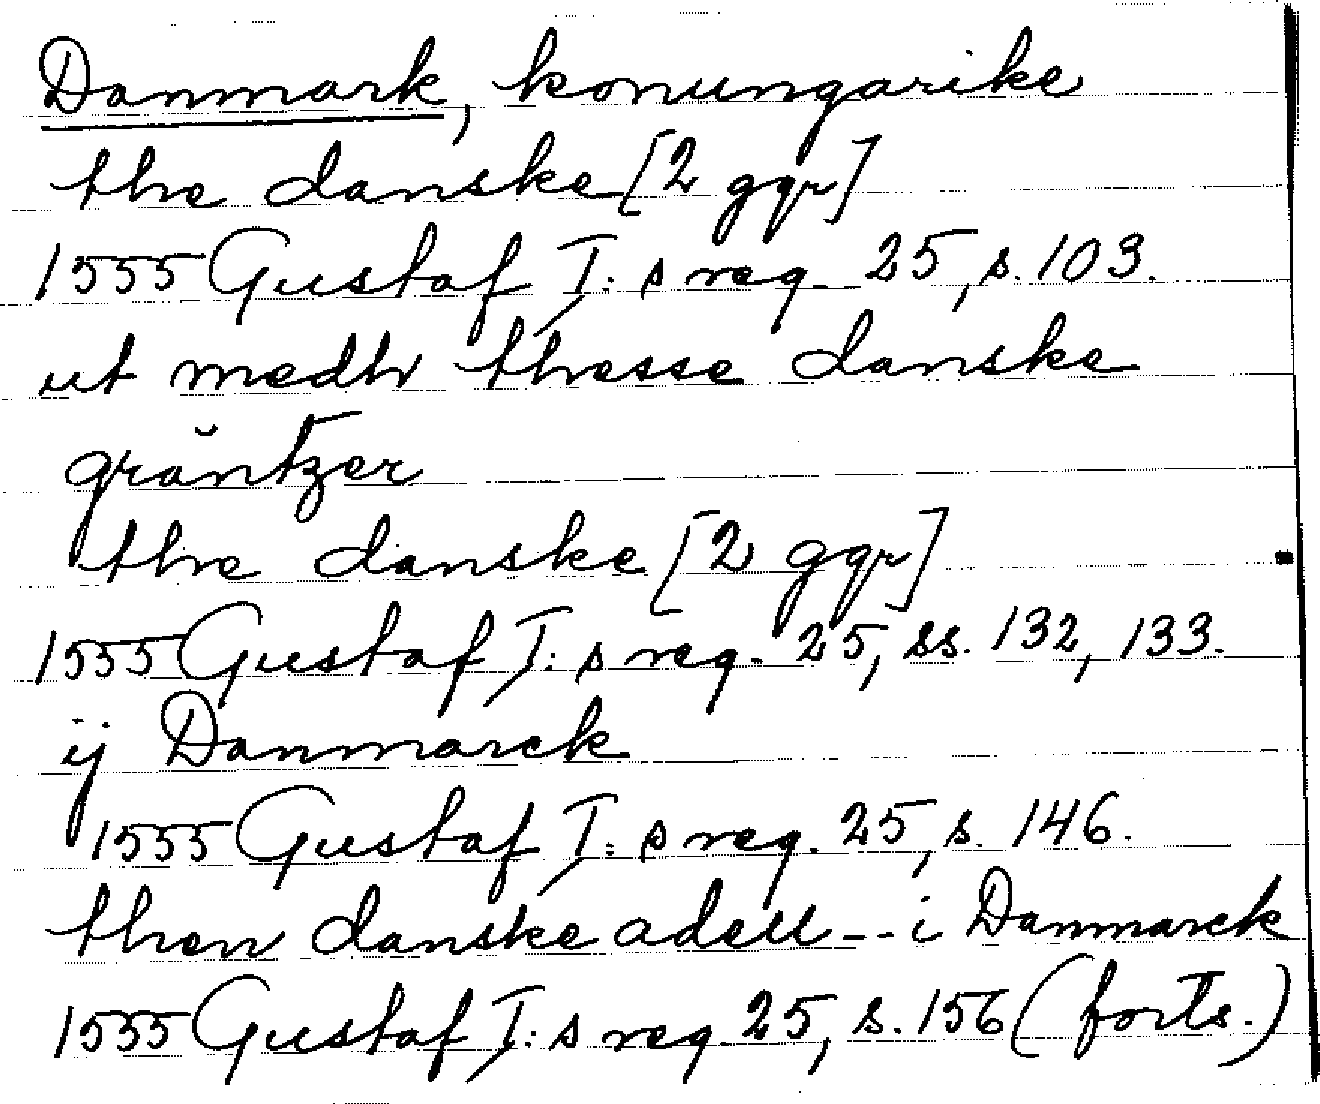 Danmark, konungarike
the danske [2 ggr]
1555 Gustaf I:s reg. 25, s. 103.
ut medh thesse danske
gräntzer
the danske [2 ggr]
1555 Gustaf I:s reg. 25, ss. 132, 133.
ij Danmarck
1555 Gustaf I:s reg. 25, s. 146.
then danske adell -- i Danmarck
1555 Gustaf I:s reg 25, s. 156 (forts.)